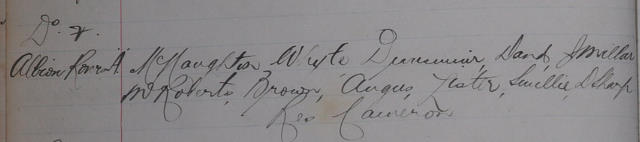 Do. 7.
Albion Rovers A McNaughton Whyte Dunsmuir, Dand, J Millar
McRoberts, Brown, Angus, Lister, Smellie, D Sharp
Res Cameron